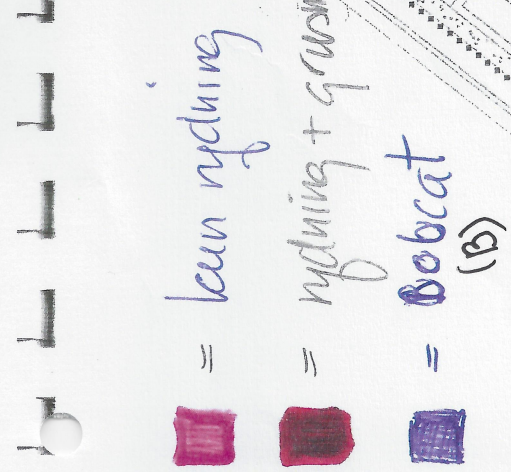 = kun rydning
= rydning + grusn
= Bobcat
(B)